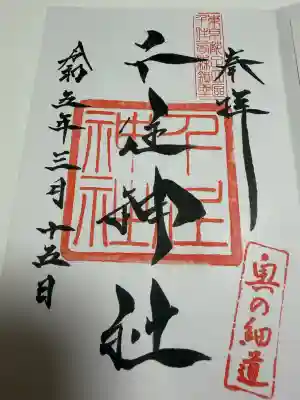 奉拝
東京都足立区
千住宮元町鎮座
千住神社
千住
神社
令和五年三月十五日
奥の細道